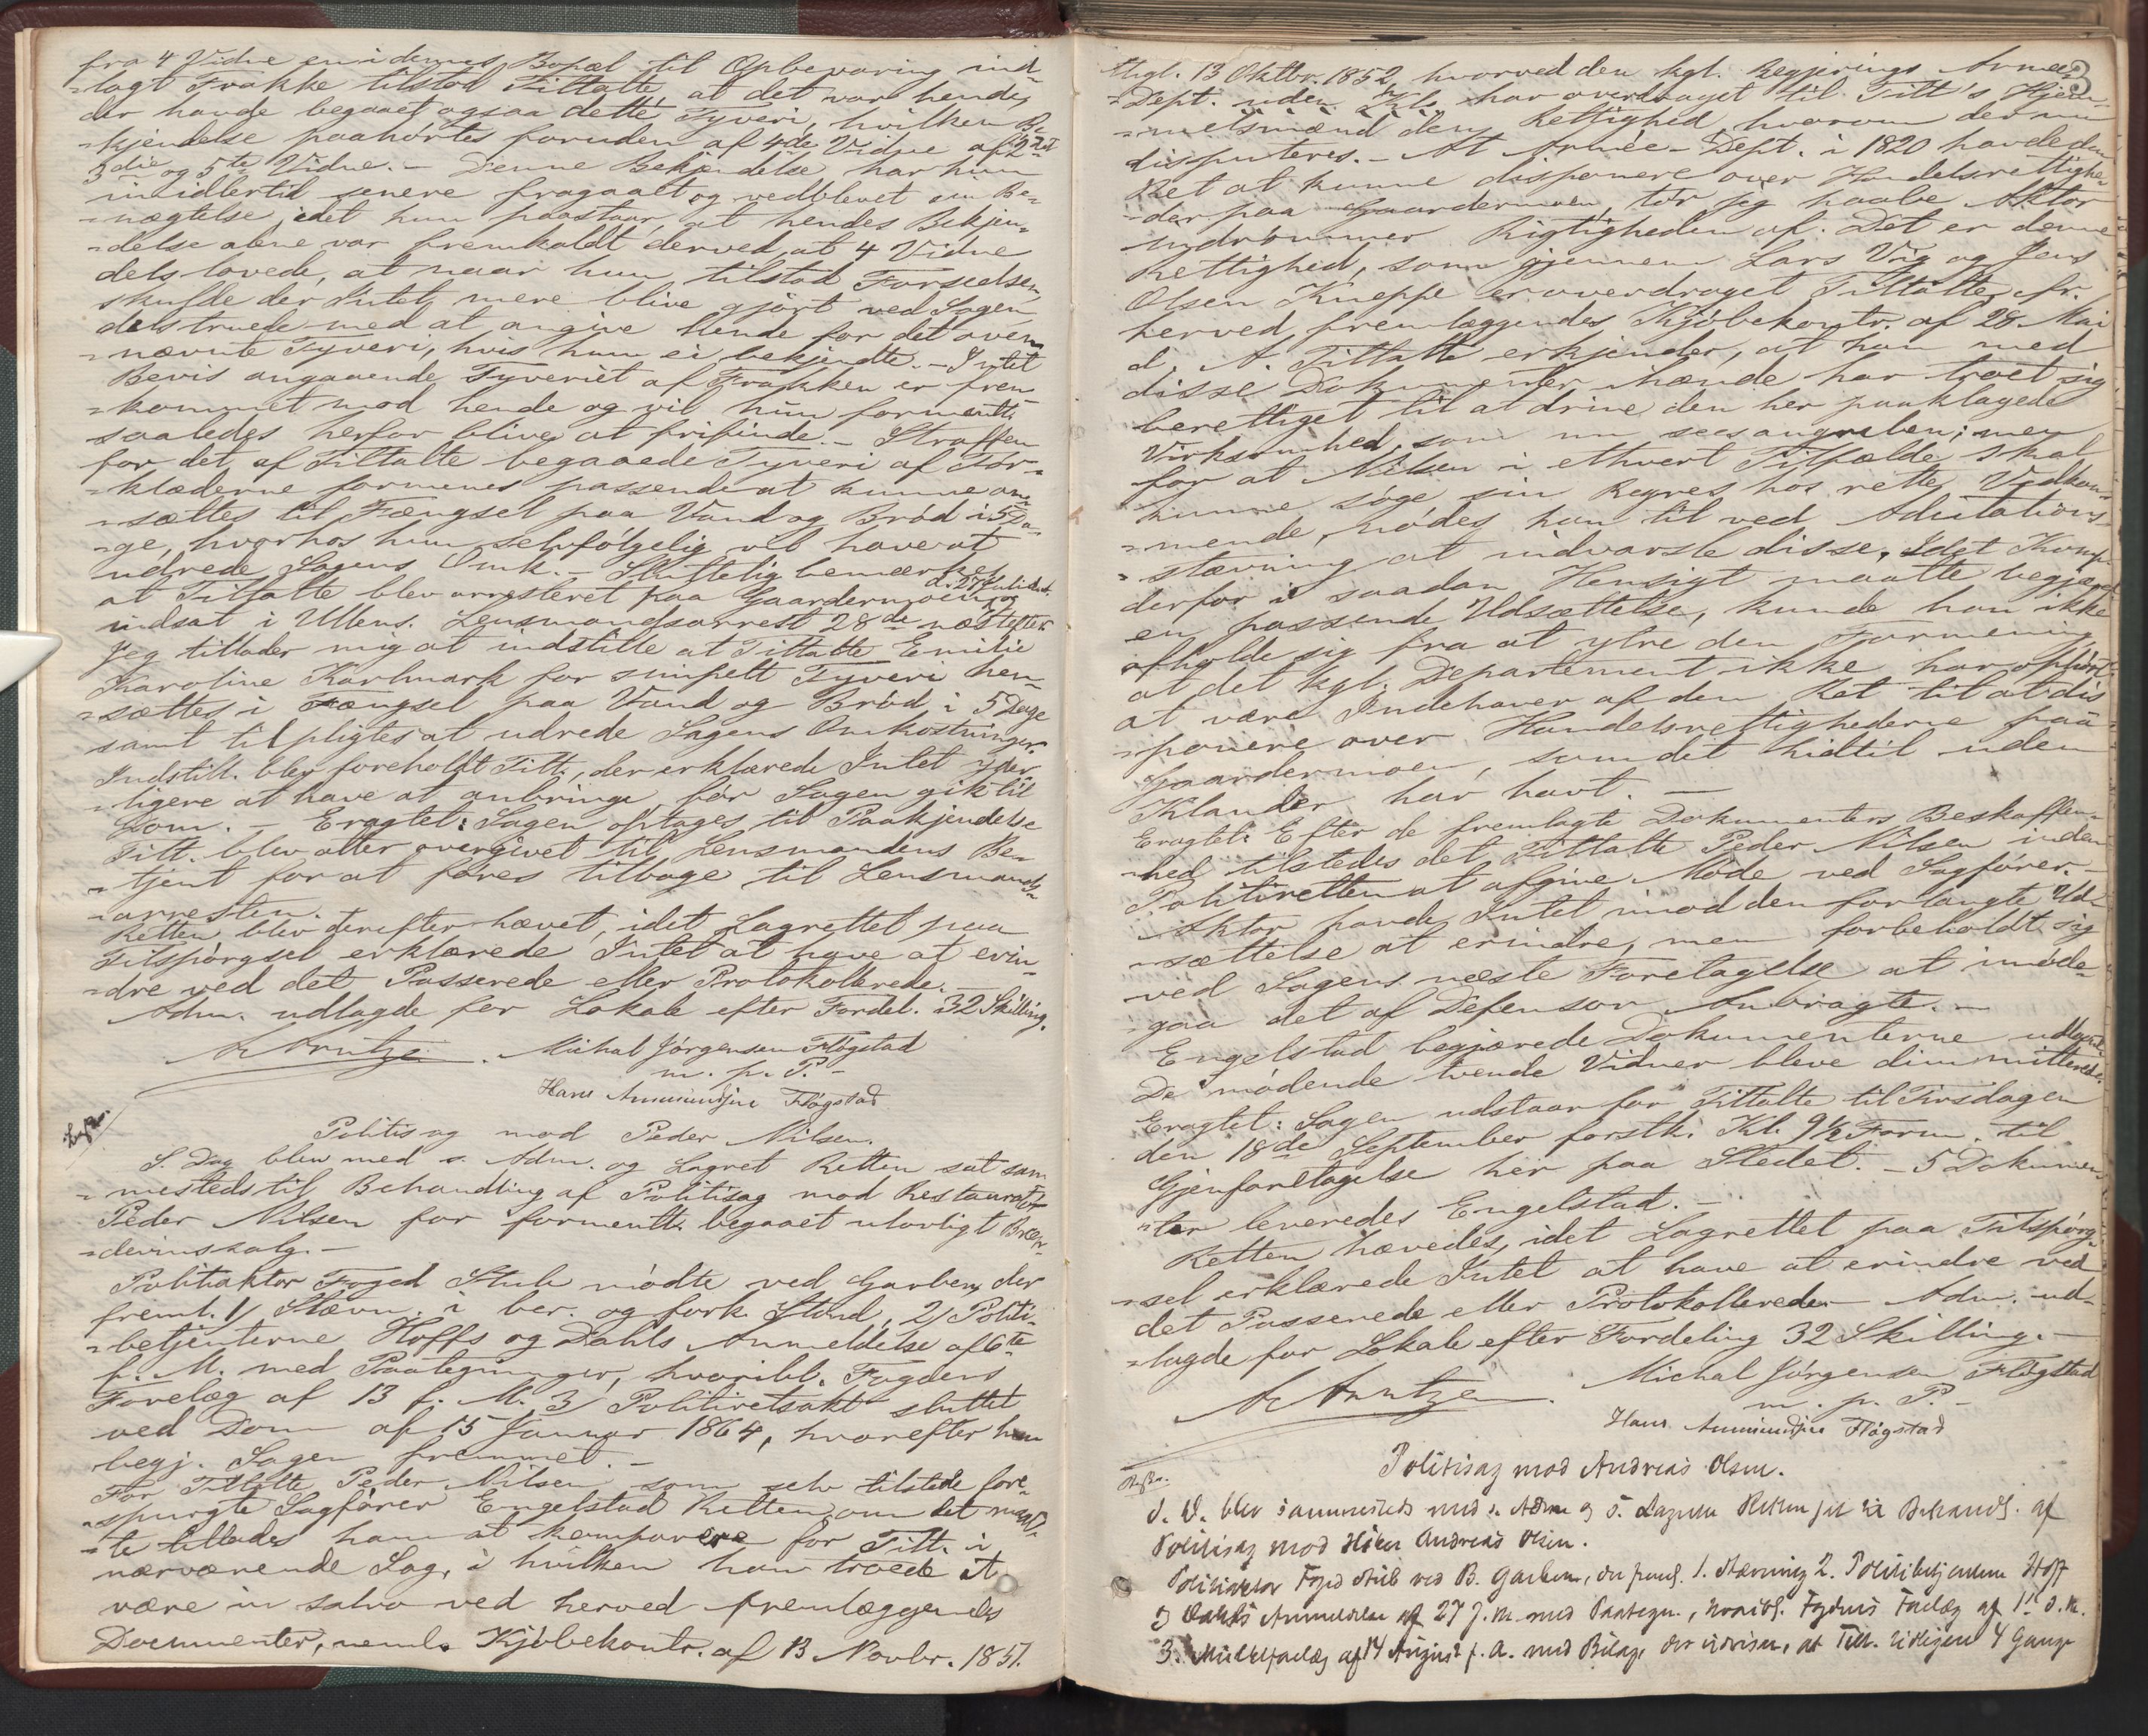 fra 4 Vidne en i dennes Bopæl til Opbevaring ind-
-lagt Frakke tilstod Tiltalte, at det var hende,
der havde begaaet ogsaa dette Tyveri, hvilken Be-
-kjendelse paahørtes foruden af 4de Vidne af 2det
3die og 5te Vidne. - Denne Bekjendelse har hun
imidlertid senere fragaaet og vedblevet sin Be-
-nægtelse idet hun paastaar, at hendes Bekjen-
-delse alene var fremkaldt derved, at 4 Vidne
dels lovede, at naar hun tilstod Forseelsen,
skulde der Intet mere blive gjort ved Sagen,
dels truede med at angive hende for det oven-
-nævnte Tyveri, hvis hun ei bekjendte. - Intet
Bevis angaaende Tyveriet af Frakken er frem-
-kommet mod hende og vil hun formentl.
saaledes herfor blive at frifinde. - Straffen
for det af Tiltalte begaaede Tyveri af Tør-
-klæderne formenes passende at kunne an-
-sættes til Fængsel paa Vand og Brød i 5 Da-
-ge, hvorhos hun selvfølgelig vil have at
udrede Sagens Omk. - Sluttelig bemærkes
at Tiltalte blev arresteret paa Gaardermoen d. 27 Juli sidst. og
indsat i Ullens. Lensmandsarrest 28de næstefter.
Jeg tillader mig at indstille at Tiltalte Emilie
Karoline Karlmark for simpelt Tyveri hen-
-sættes i Fængsel paa Vand og Brød i 5 Dage
samt tilpligtes at udrede Sagens Omkostninger.
Indstill. blev foreholdt Tilt., der erklærede Intet yder-
-ligere at have at anbringe før Sagen gik til
Dom. - Eragtet: Sagen optages til Paakjendelse
Tilt. blev atter overgivet til Lensmandens Be-
-tjent for at føres tilbage til Lensmands-
-arresten.
Retten blev derefter hævet, idet Lagrettet paa
Tilspørgsel erklærede Intet at have at erin-
-dre ved det Passerede eller Protokollerede. -
Adm. udlagde for Lokale efter Fordel. 32 Skilling.
A Arntzen. Michal Jørgensen Fløgstad
m. p. P. -
Hans Ammundsen Fløgstad
Politisag mod Peder Nilsen.
S. Dag blev med s. Adm. og Lagret Retten sat sam-
-mesteds til Behandling af Politisag mod Restauratør
Peder Nilsen for formentl. begaaet ulovligt Bræn-
-devinssalg. -
Politiaktor Foged Stub mødte ved Garben, der
freml. 1/ Stævn. i ber. og fork. Stand, 2/ Politi-
-betjenterne Hoffs og Dahls Anmeldelse af 6te
f. M. med Paategninger, hvoribl. Fogdens
Forelæg af 13 f. M. 3/ Politiretsakt sluttet
ved Dom af 15 Januar 1864, hvorefter han
begj. Sagen fremmet. -
For Tiltalte Peder Nilsen som selv tilstede fore-
-spurgte Sagfører Engelstad Retten, om det maat-
-te tillades ham at komparere for Tilt. i
nærværende Sag, i hvilken han troede at
være in salvo ved herved fremlæggendes
Documenter, neml. Kjøbekontr. af 13 Novbr. 1851.
3
Mgl. 13 Oktbr. 1852, hvorved den kgl. Regjerings Armee-
-Dept. uden Kl. har overdraget til Tilt's Hjem-
-melsmænd den Rettighed, hvorom der nu
disputeres. - At Armée-Dept. i 1820 havde den
Ret at kunne disponere over Handelsrettighe-
-der paa Gaardermoen, tør jeg haabe Aktor
indrømmer Rigtigheden af. Det er denne
Rettighed, som gjennem Lars Vig og Jens
Olsen Kneppe er overdraget Tiltalte, cfr.
herved fremlæggendes Kjøbekontr. af 28. Mai
d. A. Tiltalte erkjender, at han med
disse Dokumenter ihænde har troet sig
berettiget til at drive den her paaklagede
Virksomhed, som nu sees angreben; men
for at Nilsen i ethvert Tilfælde skal
kunne søge sin Regres hos rette Vedkom-
-mende, nødes han til ved Adcitations-
-stævning at indvarsle disse. Idet Komp.
derfor i saadan Hensigt maatte begjære
en passende Udsættelse, kunde han ikke
afholde sig fra at ytre den Formening
at det kgl. Departement ikke har ophørt
at være Indehaver af den Ret til at dis-
-ponere over Handelsrettighederne paa
Gaardermoen, som det hidtil uden
Klander har havt. -
Eragtet: Efter de fremlagte Dokumenters Beskaffen-
-hed tilstedes det Tiltalte Peder Nilsen inden
Politiretten at afgive Møde ved Sagfører. -
Aktor havde Intet imod den forlangte Ud-
-sættelse at erindre, men forbeholdt sig
ved Sagens næste Foretagelse at imøde-
-gaa det af Defensor Anbragte. -
Engelstad begjærede Dokumenterne udlaant.
De mødende tvende Vidner bleve dimitterede.
Eragtet: Sagen udstaar for Tiltalte til Tirsdagen
den 18de September førstk. Kl. 9½ Form. til
Gjenforetagelse her paa Stedet. - 5 Dokumen-
-ter leveredes Engelstad. -
Retten hævedes, idet Lagrettet paa Tilspørg-
-sel erklærede Intet at have at erindre ved
det Passerede eller Protokollerede. - Adm. ud-
-lagde for Lokale efter Fordeling 32 Skilling. -
A Arntzen. Michal Jørgensen Fløgstad
m. p. P. -
Hans Ammundsen Fløgstad
Politisag mod Andreas Olsen.
S. D. blev sammesteds med s. Adm og s. Lagrett Retten sat til Behandl. af
Politisag mod Andreas Olsen.
Politiaktor Foged Stub ved B. Garben, der freml. 1. Stævning 2. Politibetjentene Hoff
og Dahls Anmeldelse af 27 f. M. med Paategn., hvoribl. Fogdens Forelæg af 1ste d. M.
3. Mulktforlæg af 14 August f. A. med Bilag, der udviser, at Tilt. tidligere 4 Gange